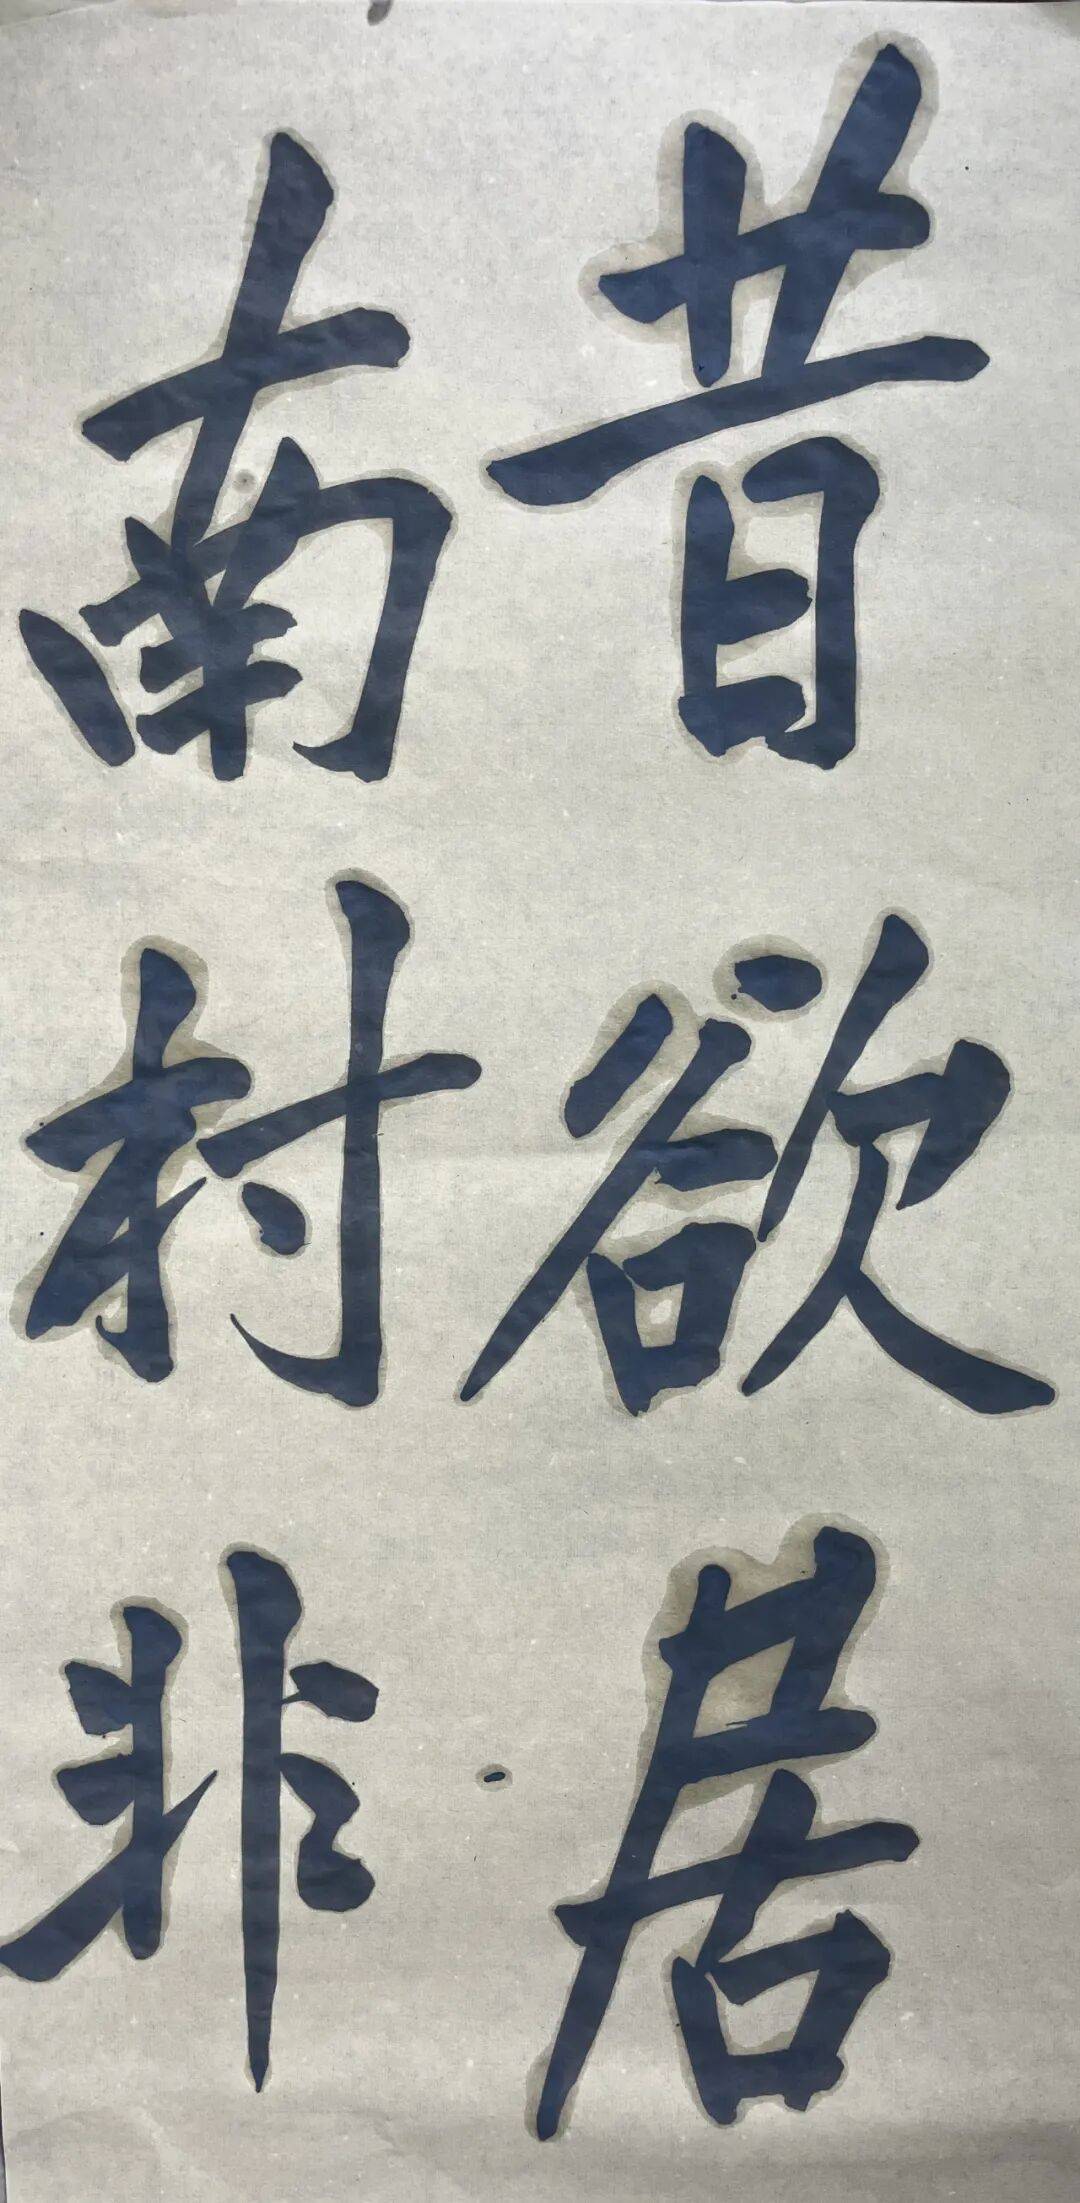 昔欲居
南村非